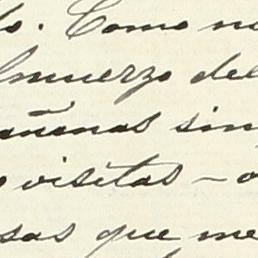 lo. Como no
lmuerzo del
añanas sin
visitas - o
sas que me